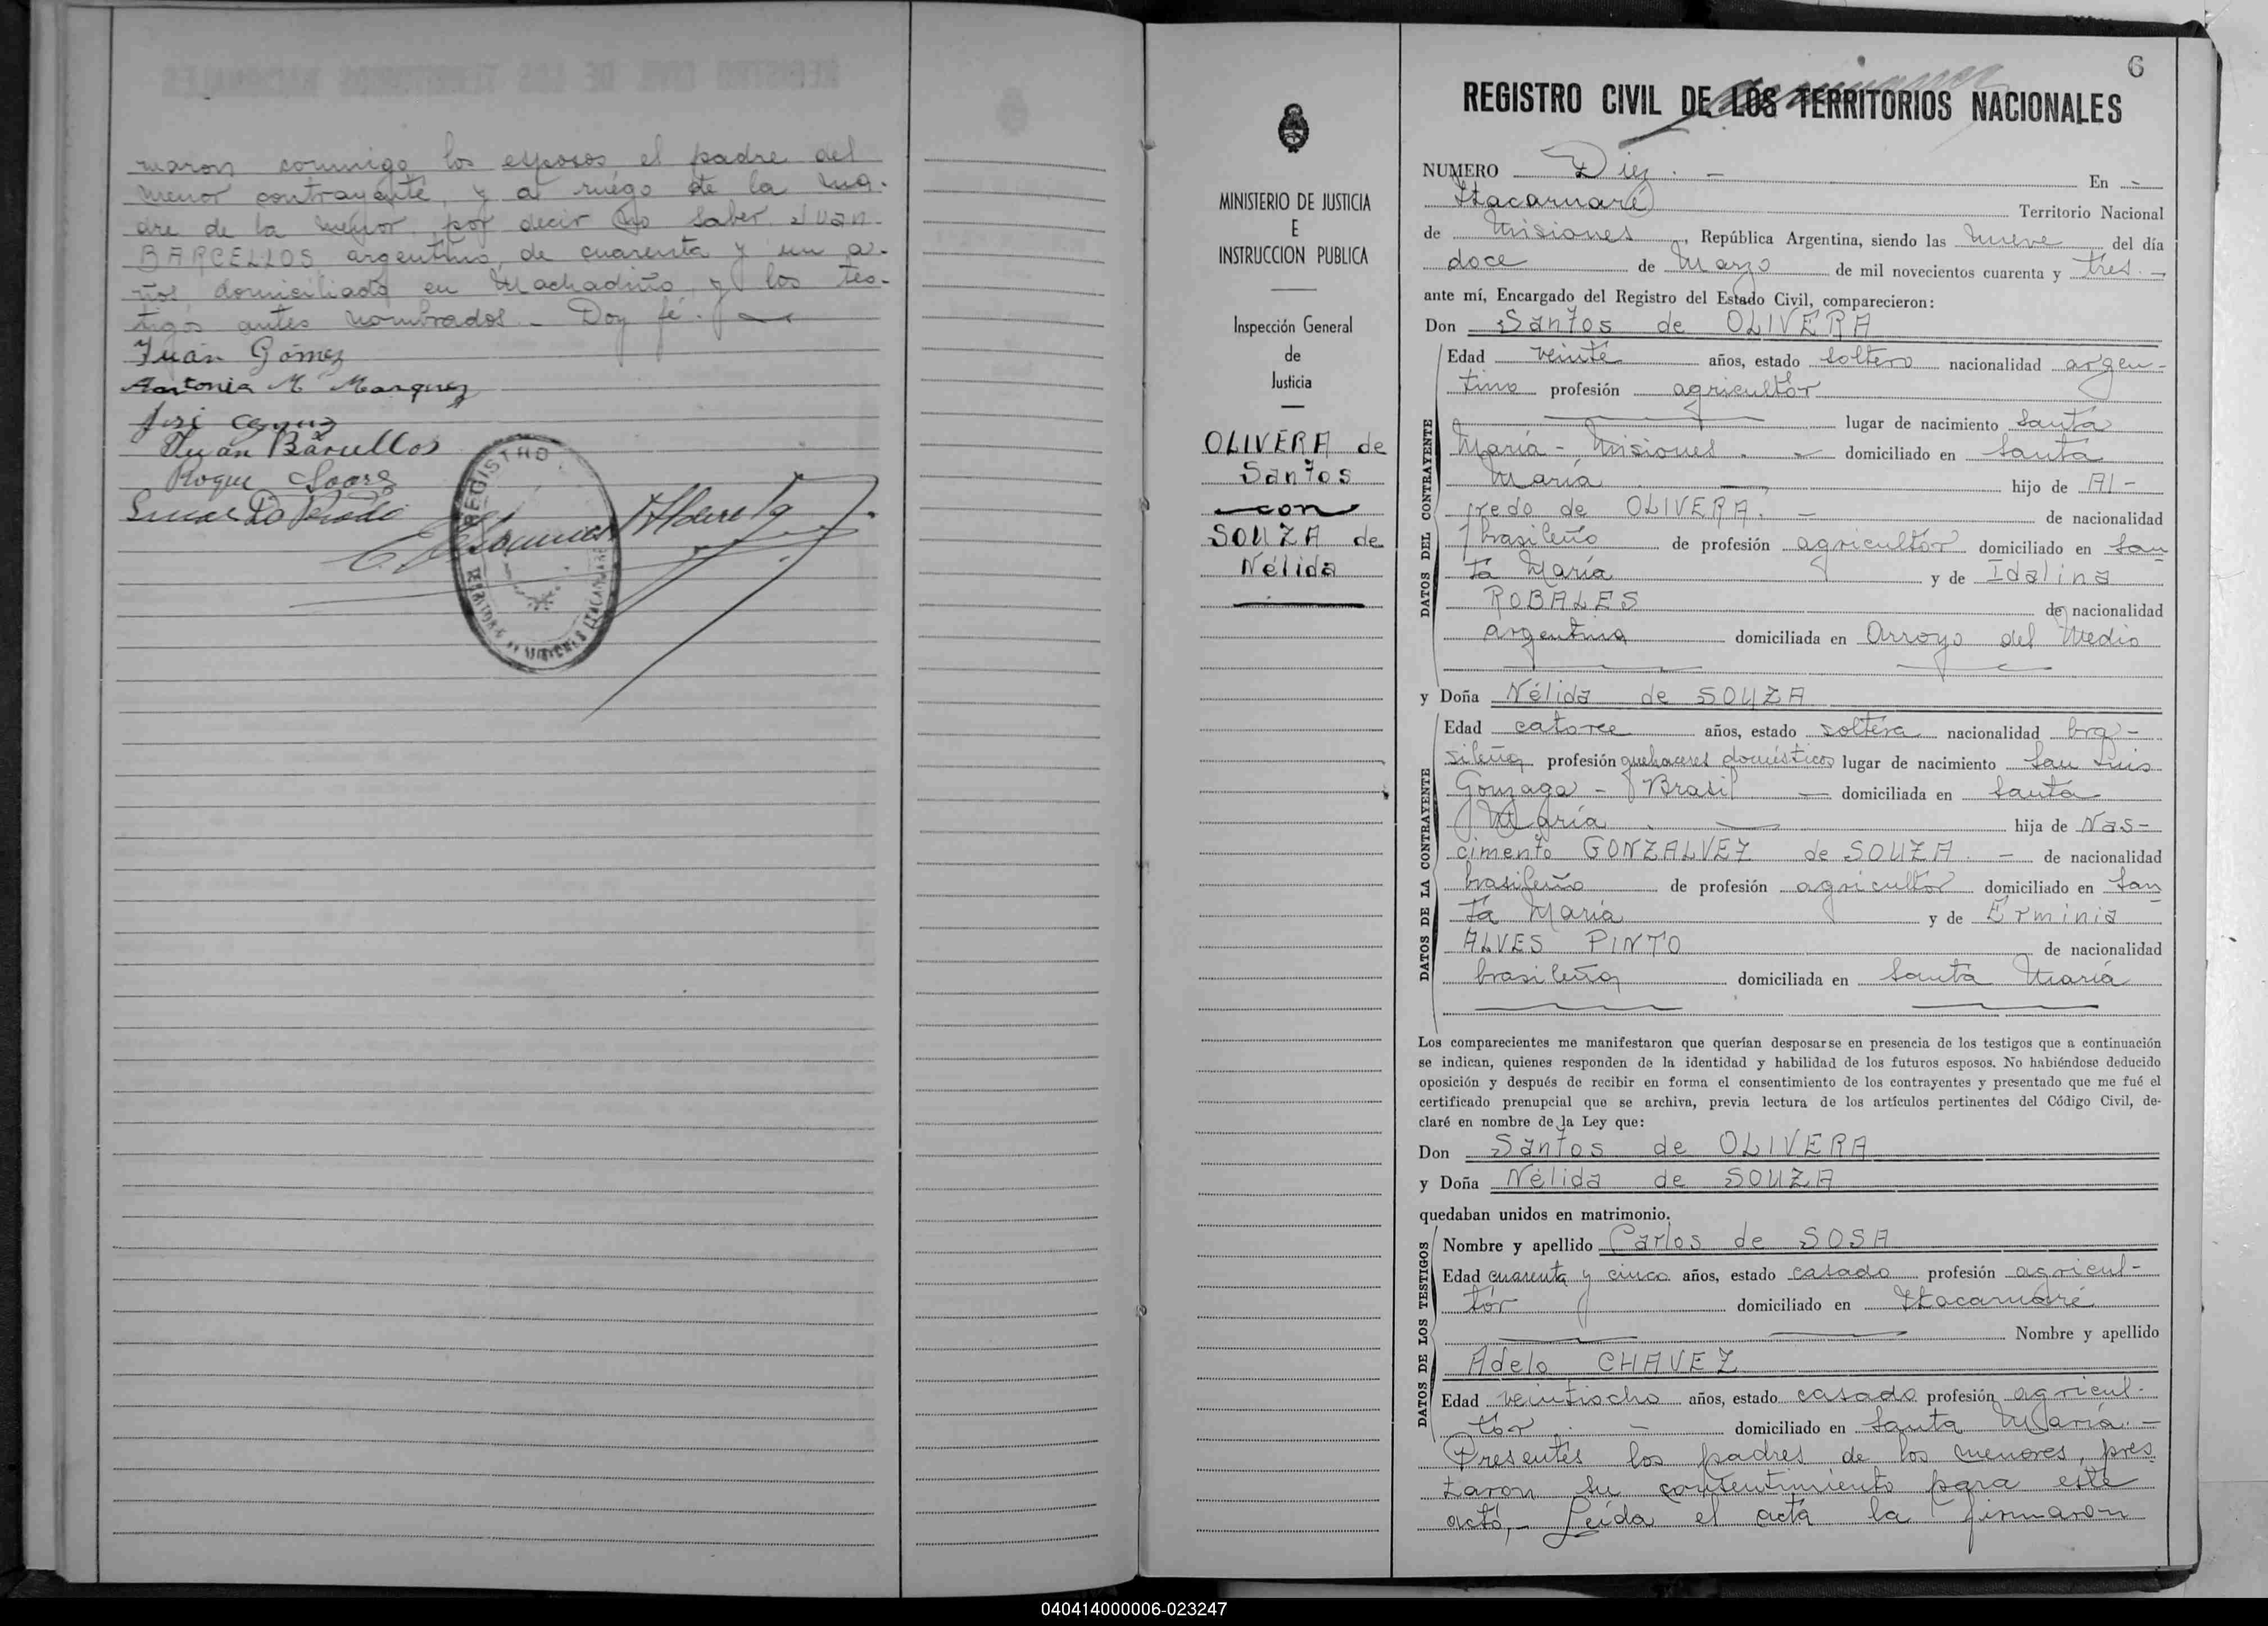 maron conmigo los esposos el padre del
menor contrayente, y a ruego de la ma-
dre de la menor, por decir no saber Juan
BARCELLOS argentino, de cuarenta y un a-
ños, domiciliado en Machadiño, y los tes-
tigos antes nombrados. - Doy fé. -
Juán Gómez
Antonia M Marquez
Juan Barcellos
Roque
REGISTRO
6
REGISTRO CIVIL DE LOS TERRITORIOS NACIONALES
MINISTERIO DE JUSTICIA
E
INSTRUCCION PUBLICA
Inspección General
de
Justicia
OLIVERA de
Santos
con
SOUZA de
Nélida
NUMERO Diez. - En -
Itacaruaré Territorio Nacional
de Misiones, República Argentina, siendo las nueve del día
doce de Marzo de mil novecientos cuarenta y tres. -
ante mí, Encargado del Registro del Estado Civil, comparecieron:
Don Santos de OLIVERA
DATOS DEL CONTRAYENTE
Edad veinte años, estado soltero nacionalidad argen-
tino profesión agricultor
lugar de nacimiento Santa
María - Misiones. - domiciliado en Santa
María hijo de Al-
fredo de OLIVERA. - de nacionalidad
brasileño de profesión agricultor domiciliado en San
ta María y de Idalina
ROBALES de nacionalidad
argentina domiciliada en Arroyo del Medio
y Doña Nélida de SOUZA
DATOS DE LA CONTRAYENTE
Edad catorce años, estado soltera nacionalidad bra-
sileña profesión quehaceres domésticos lugar de nacimiento San Luis
Gonzaga - Brasil - domiciliada en Santa
María hija de Nas-
cimento GONZALVEZ de SOUZA. - de nacionalidad
brasileño de profesión agricultor domiciliado en San
ta María y de Erminia
ALVES PINTO de nacionalidad
brasileña domiciliada en Santa María
Los comparecientes me manifestaron que querían desposarse en presencia de los testigos que a continuación
se indican, quienes responden de la identidad y habilidad de los futuros esposos. No habiéndose deducido
oposición y después de recibir en forma el consentimiento de los contrayentes y presentado que me fué el
certificado prenupcial que se archiva, previa lectura de los artículos pertinentes del Código Civil, de-
claré en nombre de la Ley que:
Don Santos de OLIVERA
y Doña Nélida de SOUZA
quedaban unidos en matrimonio.
DATOS DE LOS TESTIGOS
Nombre y apellido Carlos de SOSA
Edad cuarenta y cinco años, estado casado profesión agricul-
tor domiciliado en Itacaruaré
Nombre y apellido
Adelo CHAVEZ
Edad veintiocho años, estado casado profesión agricul-
tor. - domiciliado en Santa María. -
Presentes los padres de los menores, pres
taron su consentimiento para este
acto, - Leída el acta la firmaron
040414000006-023247